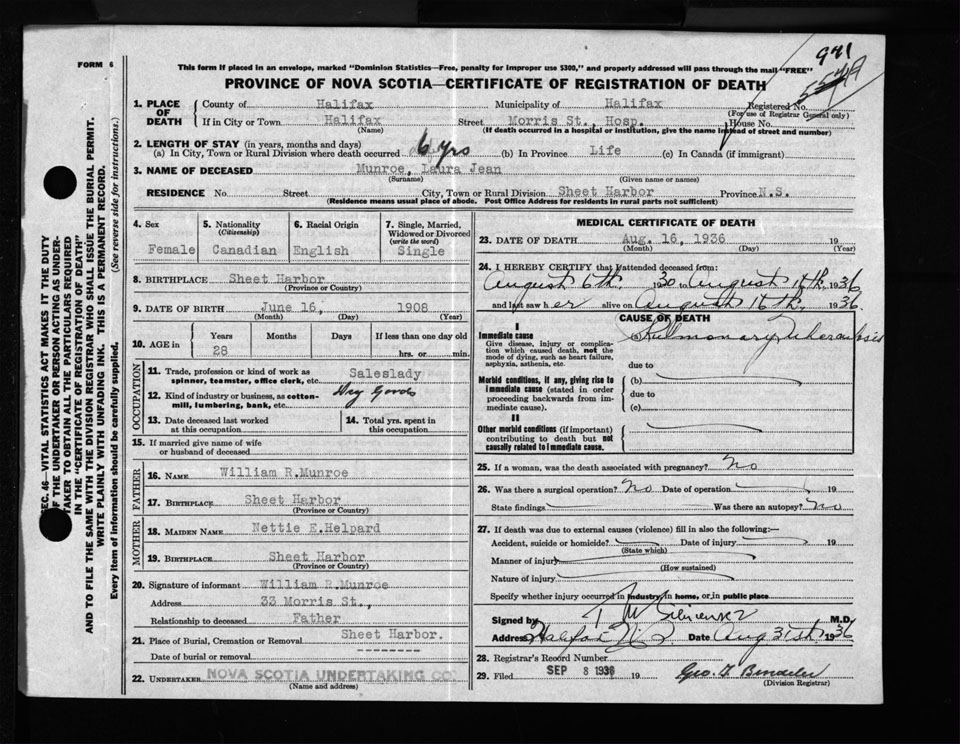 FORM 6
941
This form if placed in an envelope, marked "Dominion Statistics—Free, penalty for improper use $300," and properly addressed will pass through the mail "FREE"
PROVINCE OF NOVA SCOTIA—CERTIFICATE OF REGISTRATION OF DEATH
1. PLACE OF DEATH
County of Halifax Municipality of Halifax Registered No.
(For use of Registrar General only)
If in City or Town Halifax Street Morris St., Hosp. House No.
(Name) (If death occurred in a hospital or institution, give the name instead of street and number)
2. LENGTH OF STAY (in years, months and days)
(a) In City, Town or Rural Division where death occurred 6 yrs (b) In Province Life (c) In Canada (if immigrant)
3. NAME OF DECEASED Munroe, Laura Jean
(Surname) (Given name or names)
RESIDENCE No. Street City, Town or Rural Division Sheet Harbor Province N.S.
(Residence means usual place of abode. Post Office Address for residents in rural parts not sufficient)
4. Sex
Female
5. Nationality
(Citizenship)
Canadian
6. Racial Origin
English
7. Single, Married, Widowed or Divorced
(write the word)
Single
8. BIRTHPLACE Sheet Harbor
(Province or Country)
9. DATE OF BIRTH June 16, 1908
(Month) (Day) (Year)
10. AGE in
Years Months Days If less than one day old
28 hrs. or min.
OCCUPATION
11. Trade, profession or kind of work as
spinner, teamster, office clerk, etc. Saleslady
12. Kind of industry or business, as cotton-
mill, lumbering, bank, etc. Dry Goods
13. Date deceased last worked
at this occupation
14. Total yrs. spent in
this occupation
15. If married give name of wife
or husband of deceased
FATHER
16. NAME William R.Munroe
17. BIRTHPLACE Sheet Harbor
(Province or Country)
MOTHER
18. MAIDEN NAME Nettie E.Helpard
19. BIRTHPLACE Sheet Harbor
(Province or Country)
20. Signature of informant William R.Munroe
Address 33 Morris St.,
Relationship to deceased Father
21. Place of Burial, Cremation or Removal Sheet Harbor.
Date of burial or removal --------
22. UNDERTAKER NOVA SCOTIA UNDERTAKING CO.
(Name and address)
MEDICAL CERTIFICATE OF DEATH
23. DATE OF DEATH Aug. 16, 1936 19
(Month) (Day) (Year)
24. I HEREBY CERTIFY that I attended deceased from:
August 6th. 1930 to August 16th. 1936
and last saw her alive on August 16th. 1936.
CAUSE OF DEATH
I
Immediate cause
Give disease, injury or complica-
tion which caused death, not the
mode of dying, such as heart failure,
asphyxia, asthenia, etc.
(a) Pulmonary Tuberculosis
due to
Morbid conditions, if any, giving rise to
immediate cause (stated in order
proceeding backwards from im-
mediate cause).
(b)
due to
(c)
II
Other morbid conditions (if important)
contributing to death but not
causally related to immediate cause.
25. If a woman, was the death associated with pregnancy? No
26. Was there a surgical operation? No Date of operation 19
State findings Was there an autopsy? No
27. If death was due to external causes (violence) fill in also the following:—
Accident, suicide or homicide? Date of injury 19
(State which)
Manner of injury
(How sustained)
Nature of injury
Specify whether injury occurred in industry, in home, or in public place
Signed by M.D.
Address Halifax N.S. Date Aug 31st 1936
28. Registrar's Record Number
29. Filed SEP 8 1936 19
(Division Registrar)
SEC. 46—VITAL STATISTICS ACT MAKES IT THE DUTY
OF THE UNDERTAKER OR PERSON ACTING AS UNDER-
TAKER TO OBTAIN ALL THE PARTICULARS REQUIRED
IN THE "CERTIFICATE OF REGISTRATION OF DEATH"
AND TO FILE THE SAME WITH THE DIVISION REGISTRAR WHO SHALL ISSUE THE BURIAL PERMIT.
WRITE PLAINLY WITH UNFADING INK. THIS IS A PERMANENT RECORD.
Every item of information should be carefully supplied. (See reverse side for instructions.)